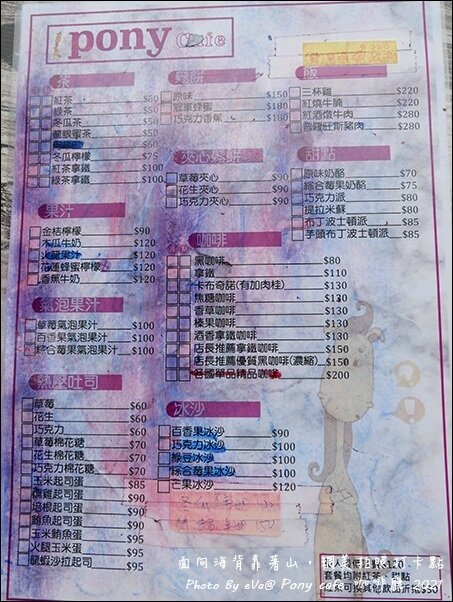 pony Cafe
茶
紅茶 $50
綠茶 $50
冬瓜茶 $50
龍眼蜜茶 $50
冬瓜檸檬 $75
紅茶拿鐵 $100
綠茶拿鐵 $100
果汁
金桔檸檬 $90
木瓜牛奶 $120
火龍果汁 $120
花蓮蜂蜜檸檬 $120
香蕉牛奶 $120
氣泡果汁
草莓氣泡果汁 $100
百香果氣泡果汁 $100
綜合莓果氣泡果汁 $100
熱壓吐司
草莓 $60
花生 $60
巧克力 $60
草莓棉花糖 $70
花生棉花糖 $70
巧克力棉花糖 $70
玉米起司蛋 $85
燻雞起司蛋 $90
培根起司蛋 $90
鮪魚起司蛋 $90
玉米鮪魚蛋 $95
火腿玉米蛋 $95
龍蝦沙拉起司 $85
鬆餅
原味 $150
冠軍蜂蜜 $180
巧克力香蕉 $180
夾心鬆餅
草莓夾心 $90
花生夾心 $90
巧克力夾心 $90
咖啡
黑咖啡 $80
拿鐵 $110
卡布奇諾(有加肉桂) $130
焦糖咖啡 $130
香草咖啡 $130
榛果咖啡 $130
酒香拿鐵咖啡 $150
店長推薦拿鐵咖啡 $150
店長推薦優質黑咖啡(濃縮) $150
各國單品精品咖啡 $200
冰沙
百香果冰沙 $90
巧克力冰沙 $100
綠豆冰沙 $100
綜合莓果冰沙 $100
芒果冰沙 $120
飯
三杯雞 $220
紅燒牛腩 $220
紅酒燉牛肉 $280
普羅旺斯豬肉 $280
甜點
原味奶酪 $70
綜合莓果奶酪 $75
巧克力派 $80
提拉米蘇 $80
布丁波士頓派 $85
芋頭布丁波士頓派 $85
$120
套餐均附紅茶、甜點
紅茶可換其他飲品折抵$50
面向海背靠著山，絕美拍照打卡點
Photo By eVa@ Pony cafe 咖啡廳 2021